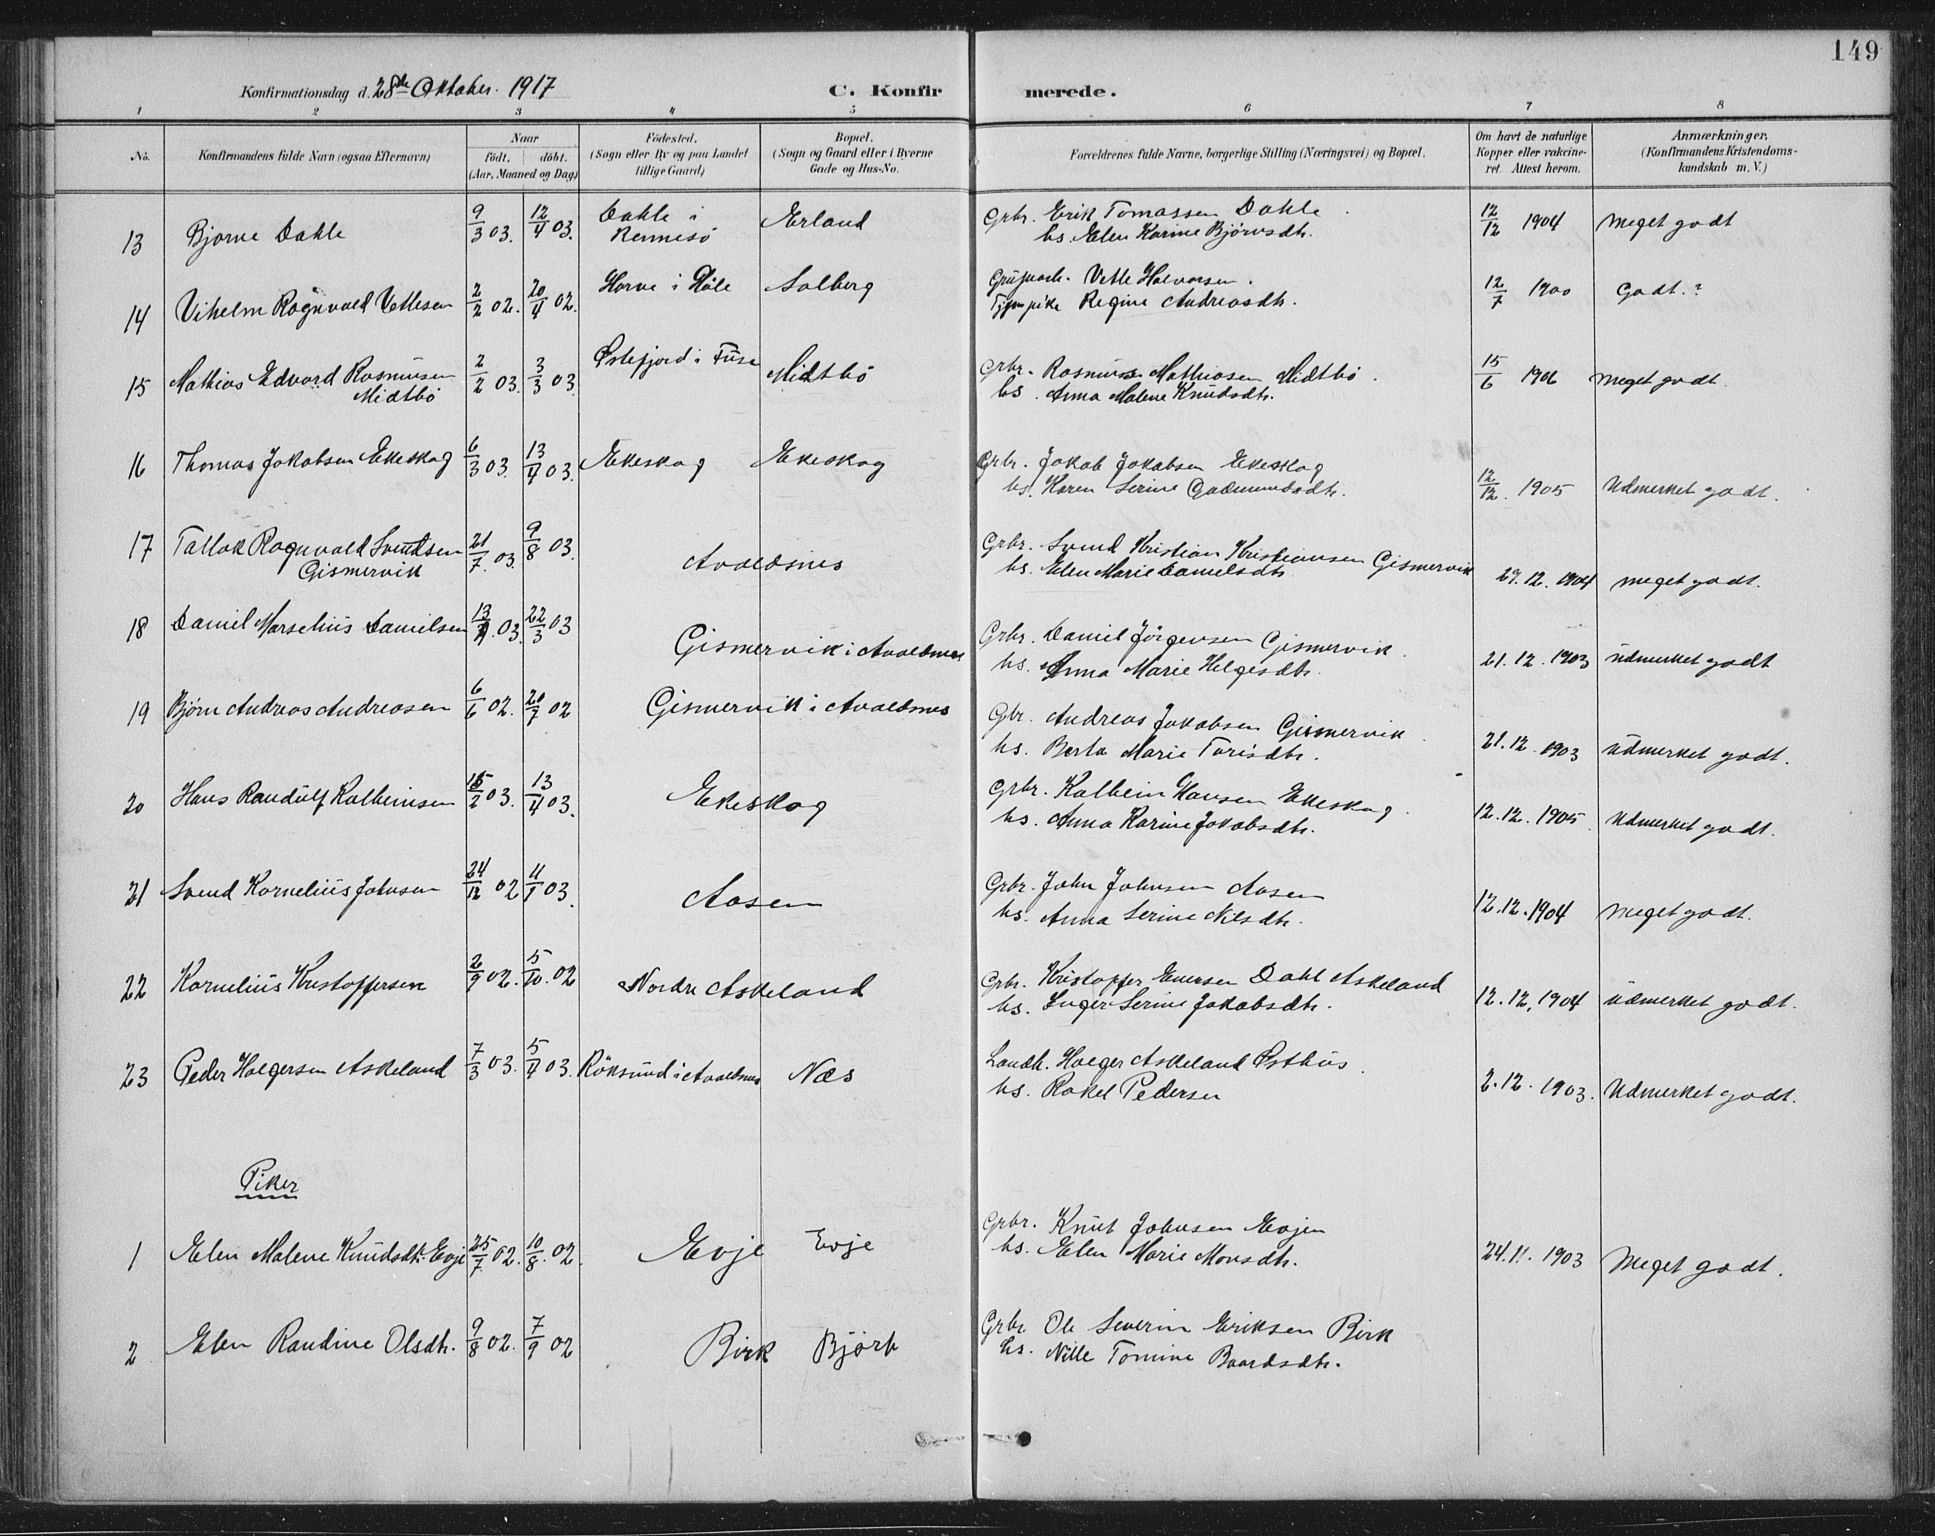 149
Konfirmationsdag d. 28de Oktober 1917
C. Konfirmerede.
1 2 3 4 5 6 7 8
No. Konfirmandens fulde Navn (ogsaa Efternavn) Naar födt. döbt. (Aar, Maaned og Dag) Födested. (Sogn eller By og paa Landet tillige Gaard) Bopæl. (Sogn og Gaard eller i Byerne Gade og Hus-No. Forældrenes fulde Navne, borgerlige Stilling (Næringsvei) og Bopæl. Om havt de naturlige Kopper eller vakcineret. Attest herom. Anmærkninger. (Konfirmandens Kristendomskundskab m. V.)
13 Bjorne Dahle 9/3 03. 12/4 03. Dahle i Rennesö Erland Grbr. Erik Tomassen Dahle. 12/12 1904 Meget godt
hs. Elen Karine Björnsdtr.
14 Vihelm Rognvald Vettesen 2/2 02. 20/4 02. Horve i Höle Solberg Vetle Halvorsen. 12/7 1900 Godt.?
Regine Andreasdtr.
15 Mathias Edvard Rasmusen Midtbö 2/2 03. 3/3 03. Østefjord i Fuse Midtbö Grbr. Rasmus Mathiasen Midtbö. 15/6 1906 Meget godt.
hs. Anna Malene Knudsdtr.
16 Thomas Jakobsen Ekeskog 6/3 03. 13/4 03. Ekeskog Ekeskog Grbr. Jakob Jakobsen Ekeskog 12/12. 1905 Udmerket godt.
hs. Karen Serine Gudmundsdtr.
17 Tallak Rognvald Svendsen Gismervik 21/7. 03. 9/8 03. Avaldsnes Grbr. Svend Kristian Kristiansen Gismervik 29.12.1904 meget godt.
hs. Elen Marie Danielsdtr.
18 Daniel Marselius Danielsen 03. 22/3 03 Gismervik i Avaldsnes Grbr. Daniel Jörgensen Gismervik. 21.12.1903 udmerket godt
hs. Anna Marie Helgesdtr.
19 Björn Andreas Andreasen 6/6 02. 20/7 02 Gismervik i Avaldsnes Gbr. Andreas Jakobsen Gismervik. 21.12.1903 udmerket godt.
hs. Berta Marie Torisdtr.
20 Hans Randulf Kolbeinsen 15/2 03. 13/4 03. Ekeskog Grbr. Kolbein Hansen Ekeskog. 12.12.1905 Udmerket godt.
hs. Anna Karine Jakobsdtr.
21 Svend Kornelius Johnsen 24/12 02 11/1 03. Aasen Grbr. John Johnsen Aasen 12.12.1904 Meget godt.
hs. Anna Serine Nilsdtr.
22 Kornelius Kristoffersen 2/9 02. 5/10. 02 Nordre Askeland Grbr. Kristoffer Enersen Dahl Askeland 12.12.1904 udmerket godt.
hs. Inger Serine Jakobsdtr.
23 Peder Holgersen Askeland 7/3 03. 5/4 03. Röksund i Avaldsnes Næs Landh. Holger Askeland Østhus. 2.12.1903. Udmerket godt.
hs. Rakel Pedersen
Piker
1 Elen Malene Knudsdtr. Evje 25/7 02. 10/8. 02. Evje Evje Grbr. Knut Johnsen Evjen 24.11.1903 Meget godt.
hs. Elen Marie Monsdtr.
2 Elen Randine Olsdtr. 9/8 02. 7/9 02 Birk Bjørk Grbr. Ole Severin Eriksen Birk
hs. Nille Tomine Baardsdtr.